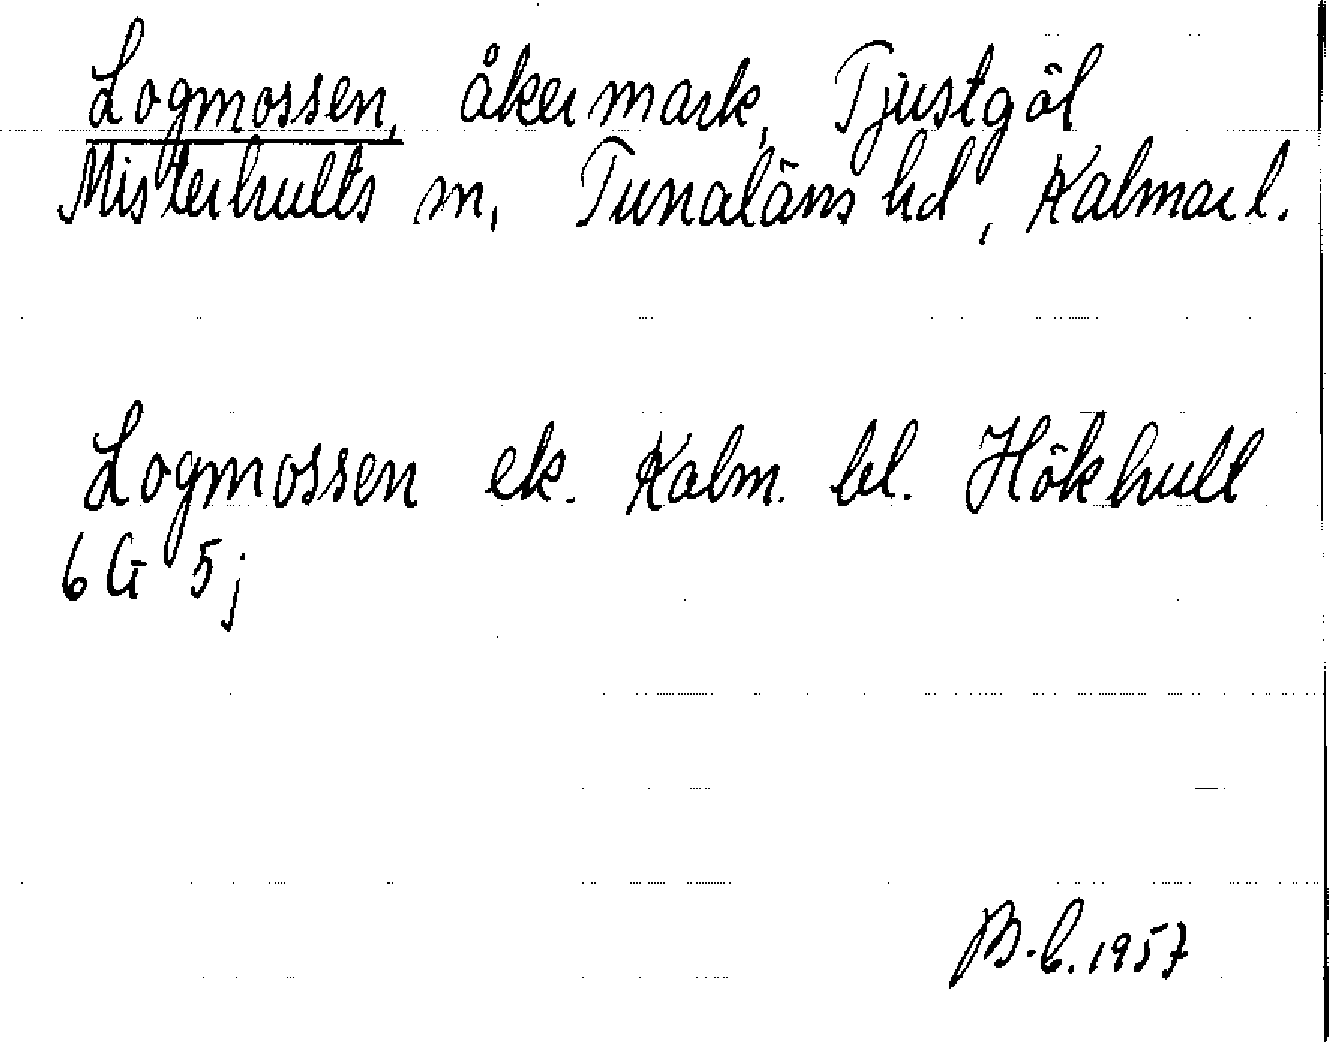 Logmossen, åkermark, Tjustgöl
Misterhults sn, Tunaläns hd, Kalmar l.
Logmossen ek. Kalm. bl. Hökhult
6 G 5 j
B-b. 1957